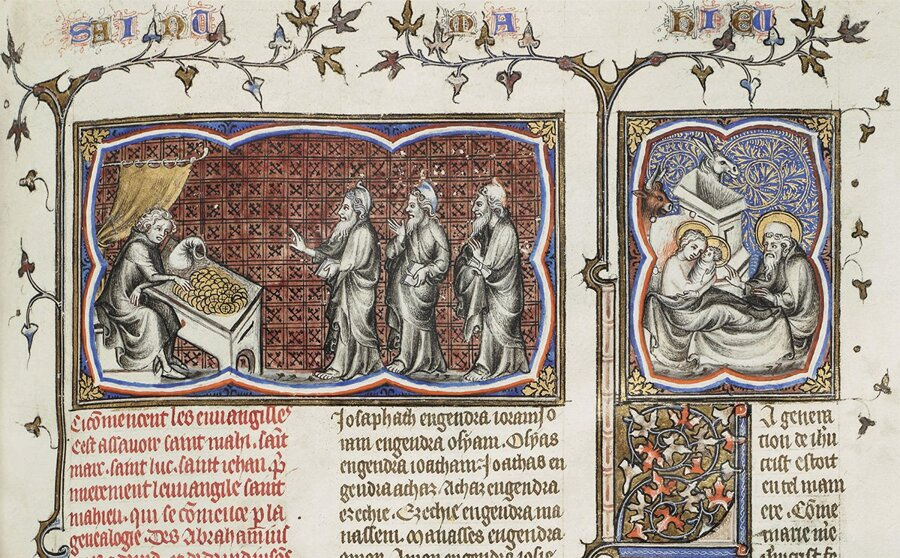 SAINT MAHIEU
Cicomencent les euuangilles
Cest assauoir saint mahi. saint
marc. saint luc. saint iehan. p
mierement leuuangile saint
mahieu. qui se comence p la
genealogie. Des Abraham
Josaphath engendra ioram Jo
ram engendra osyam. Osyas
engendra ioatham. Joathas en
gendra achaz. Achaz engendra
ezechie. Ezechie engendra ma
nassem. Manasses engendra
amon. Amon engendra iosie
La genera
tion de ihu
crist estoit
en tel mani
ere. Come
marie me